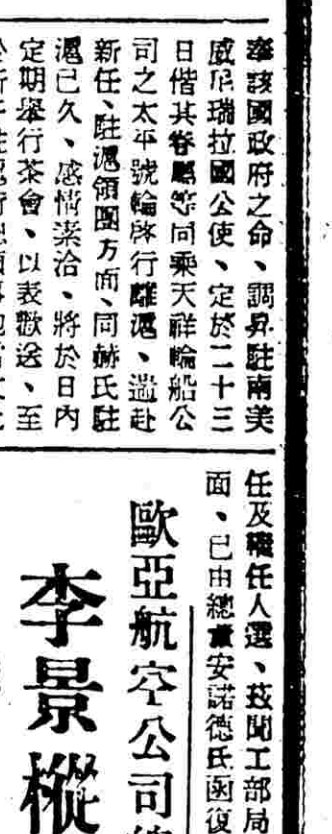 奉該國政府之命、調昇駐南美
威尼瑞拉國公使、定於二十三
日偕其眷屬等同乘天祥輪船公
司之太平號輪啓行離滬、遄赴
新任、駐滬領團方面、同赫氏駐
滬已久、感情素洽、將於日內
定期舉行茶會、以表歡送、至
任及職任人選、茲聞工部局
面、已由總董安諾德氏函復
歐亞航空公司
李景樅